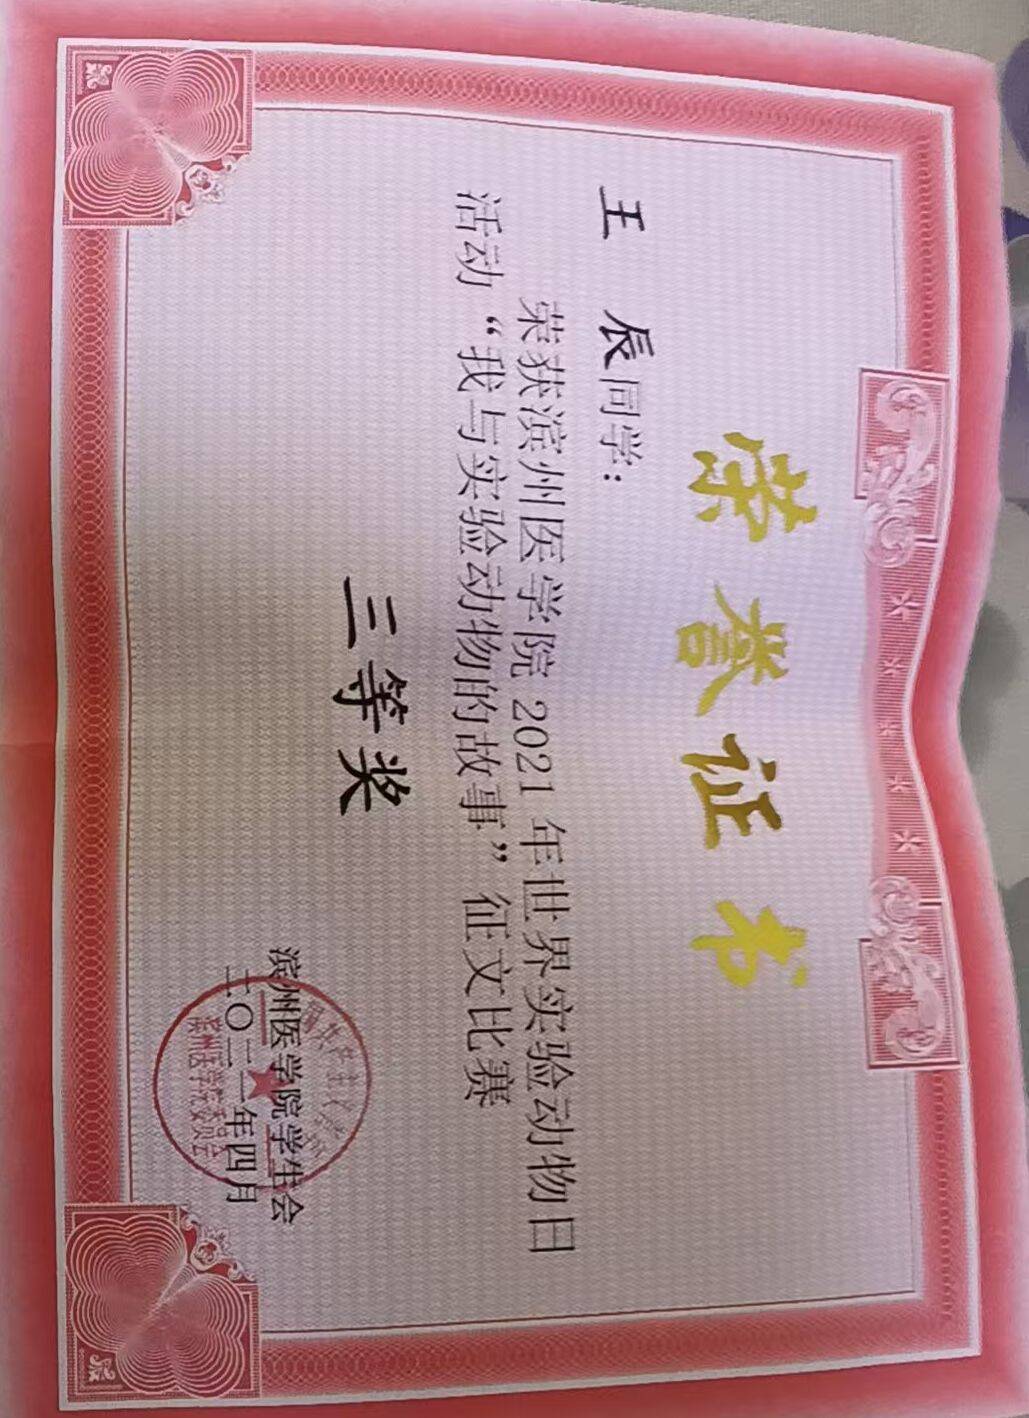 荣誉证书
王 辰同学：
荣获滨州医学院 2021 年世界实验动物日
活动“我与实验动物的故事”征文比赛
三等奖
滨州医学院学生会
二〇二一年四月
滨州医学院委员会